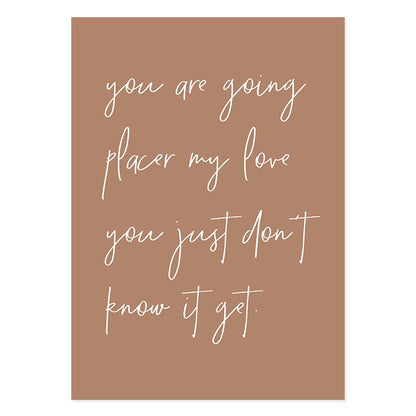 you are going
placer my love
you just don't
know it get.